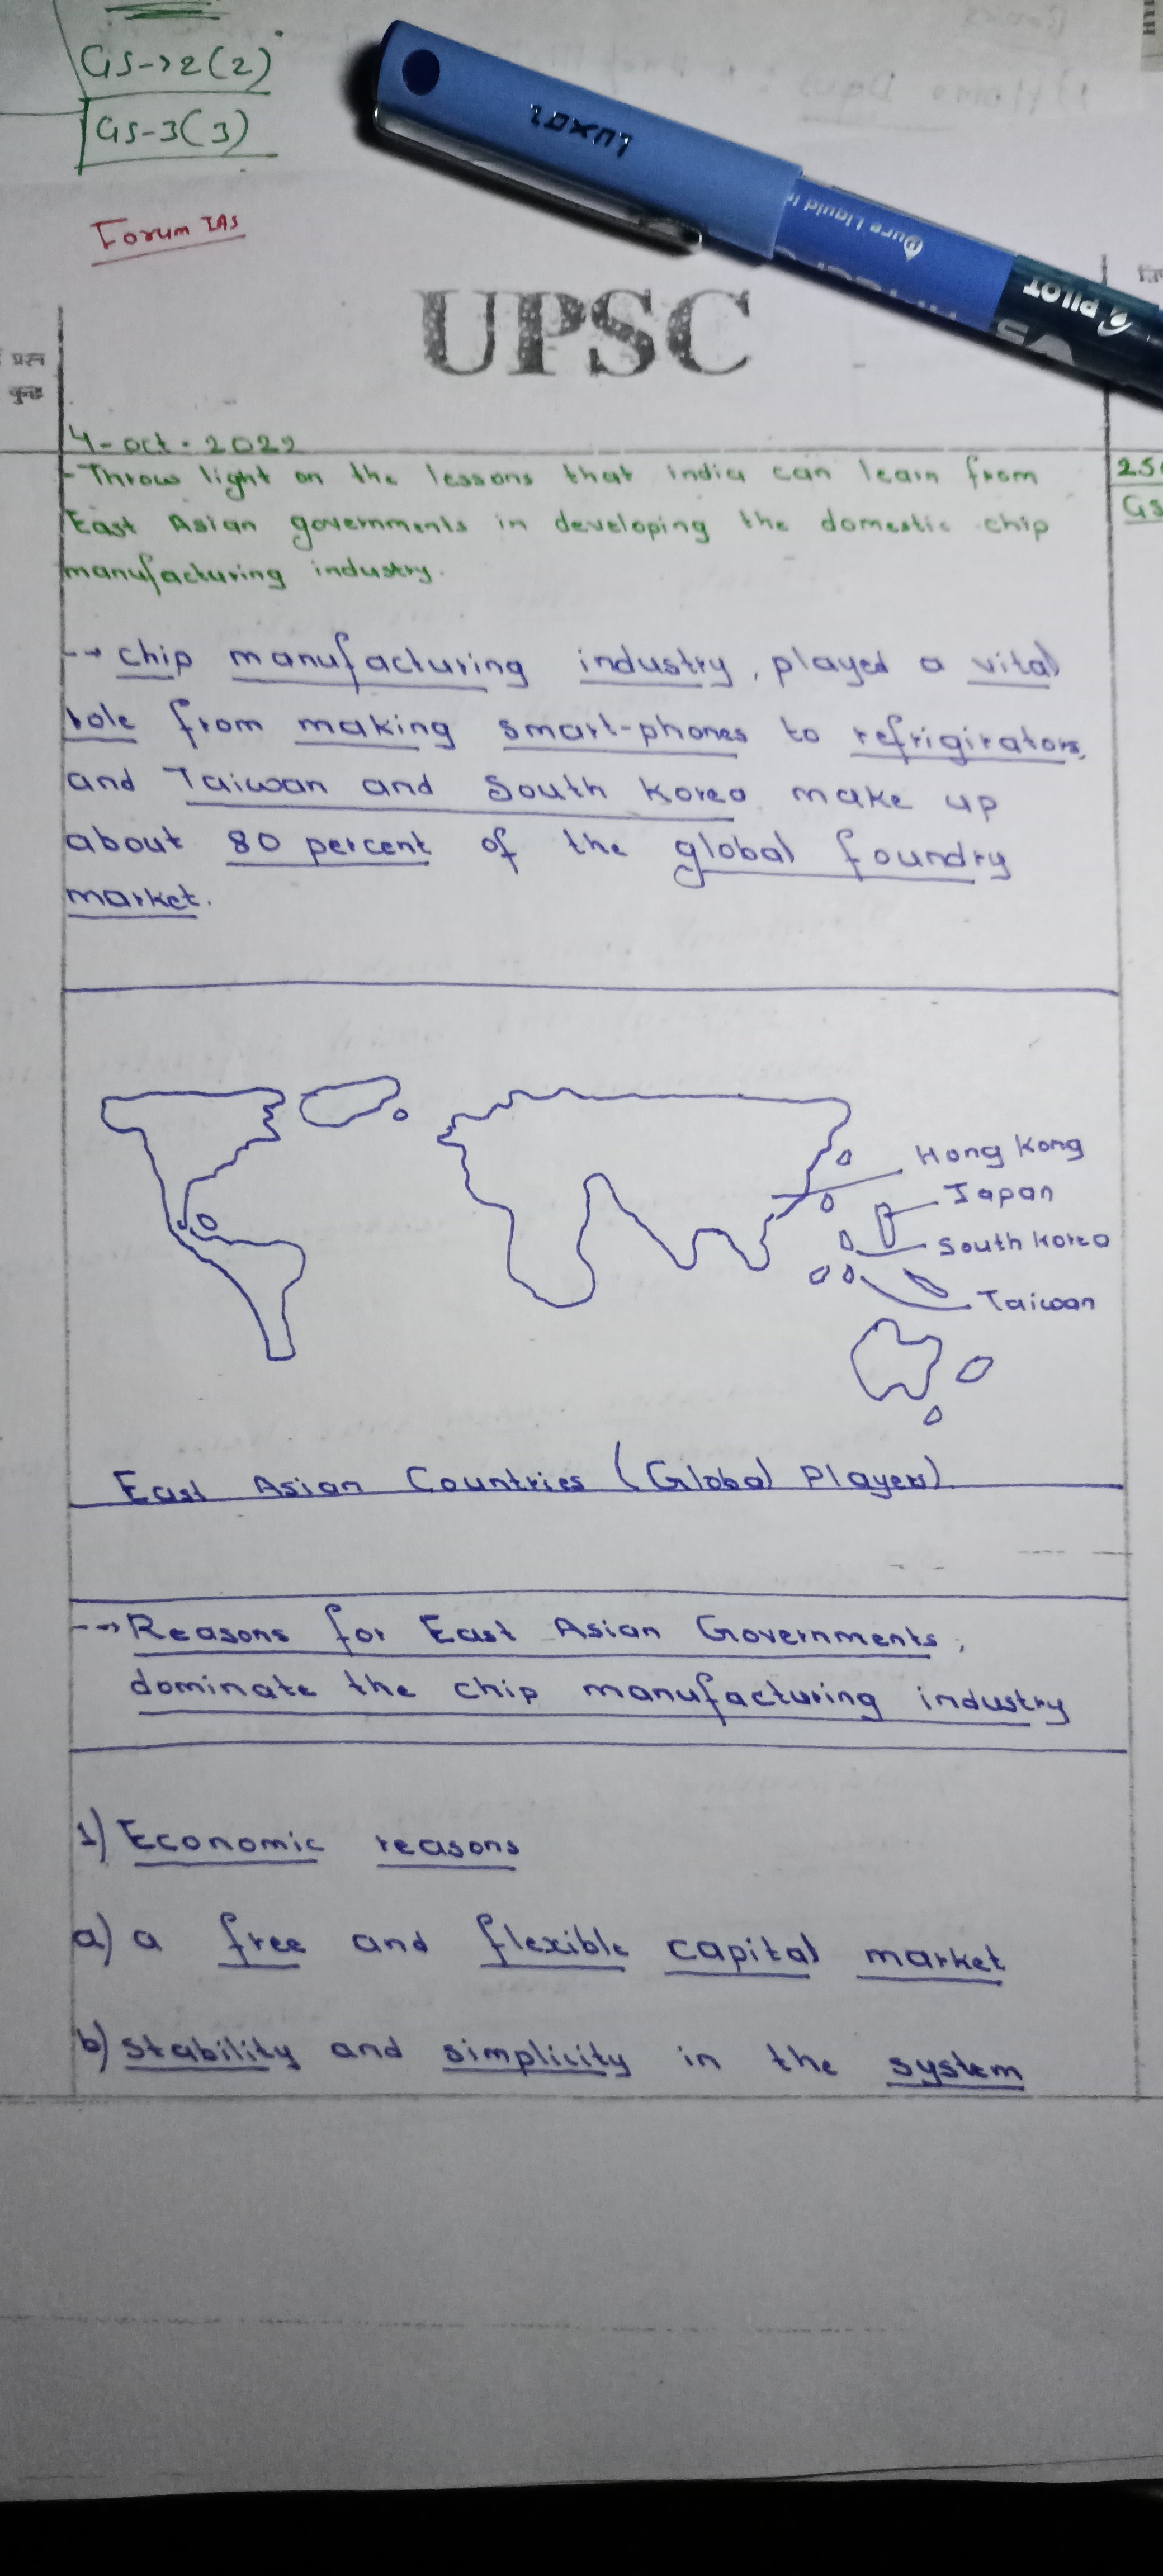 GS->2(2)
GS-3(3)
Forum IAS
LUXOR
Pure Liquid
PILOT
V5
UPSC
प्रश्न
4-Oct-2022
- Throw light on the lessons that India can learn from
East Asian governments in developing the domestic chip
manufacturing industry.
25
GS
--> chip manufacturing industry, played a vital
role from making smart-phones to refrigirators,
and Taiwan and South Korea make up
about 80 percent of the global foundry
market.
Hong Kong
Japan
South Korea
Taiwan
East Asian Countries (Global Players)
--> Reasons for East Asian Governments,
dominate the chip manufacturing industry
1) Economic reasons
a) a free and flexible capital market
b) stability and simplicity in the system